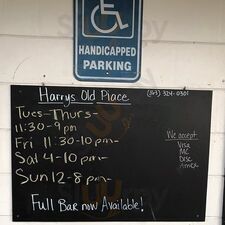 HANDICAPPED
PARKING
Harrys Old Place
Tues-Thurs-
11:30-9pm
Fri 11:30-10pm-
Sat 4-10pm-
Sun 12-8pm-
We accept:
Visa
MC
Disc
Amex
Full Bar now Available!